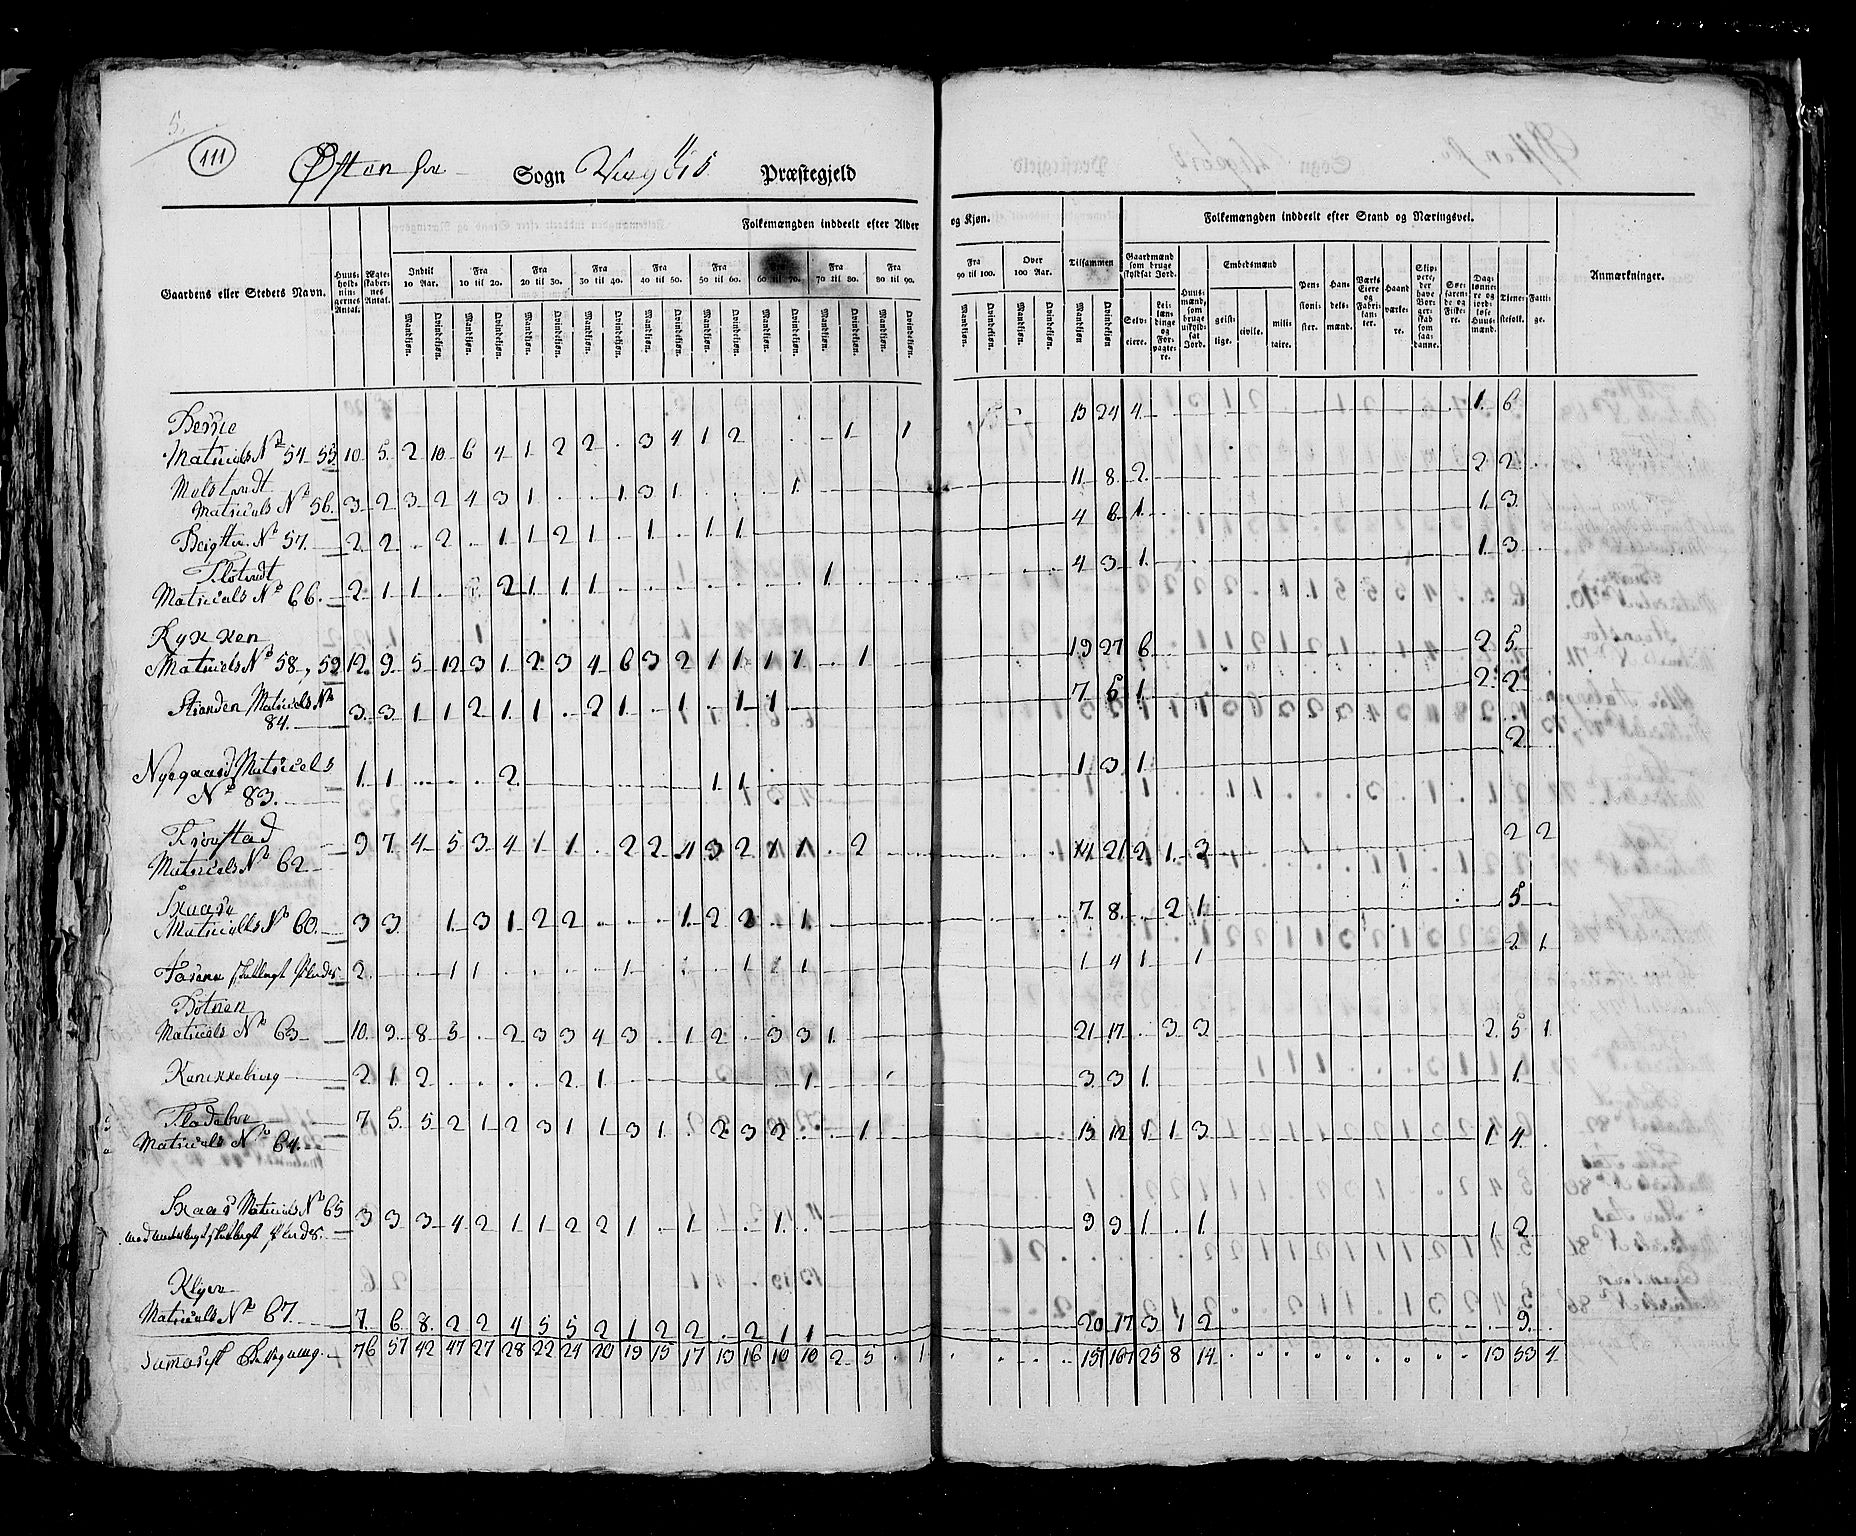 5.
111
Østensøe Sogn Vigøers Præstegjeld
Gaardens eller Stedets Navn.
Huus-holdnin-gernes Antal.
Ægte-skaber-nes Antal.
Folkemængden inddeelt efter Alder og Kjøn.
Indtil 10 Aar.
Fra 10 til 20.
Fra 20 til 30.
Fra 30 til 40.
Fra 40 til 50.
Fra 50 til 60.
Fra 60 til 70.
Fra 70 til 80.
Fra 80 til 90.
Fra 90 til 100.
Over 100 Aar.
Tilsammen
Mandkjøn. Qvindekjøn.
Folkemængden inddeelt efter Stand og Næringsvei.
Gaardmænd som bruge skyldsat Jord.
Selv-eiere.
Lei-læn-dinge og For-pagte-re.
Huus-mænd, som bruge uskyld-sat Jord.
Embedsmænd
geist-lige.
civile.
mili-taire.
Pen-sioni-ster.
Han-dels-mænd.
Værks Eiere og Fabri-kan-ter.
Haand værke-re.
Skip-pere, der have Bor-ger-skab som saa-danne.
Søe-faren-de og Fiske-re.
Dag-lønne-re og jord-løse Huus-mænd.
Tjene-stefolk.
Fatti-ge.
Anmærkninger.
Berrie
Matriculs No 54 55 10 5 2 10 6 4 1 2 2 . 3 4 1 2 . . . 1 . 1 13 24 4 1 6
Molstvedt
Matriculs No 56. 3 2 3 2 4 3 1 . . 1 3 1 . . . 1 11 8 2 2 2
Bergstøe No 57. 2 2 . 2 . 1 1 2 1 . 1 . 1 1 4 6 1 1 3
Flotvedt
Matriculs No 66. 2 1 1 . . 2 1 1 1 . . . . . . . 1 4 3 1 1 3
Ryxxen
Matriculs No 58, 59 12 9 5 12 3 1 2 3 4 6 3 2 1 1 1 1 . 1 19 27 6 2 5
Stranden Matriculs No
84. 3 3 1 1 2 1 1 . 2 1 . 1 . 1 1 7 5 1 2 2
Nyegaard Matriculs
No 83. 1 1 . . . 2 1 1 1 3 1 2
Trovstad
Matriculs No 62 9 7 4 5 3 4 1 1 . 2 2 4 3 2 1 1 . 2 14 21 2 1 3 2 2
Skaare
Matriculs No 60. 3 3 1 3 1 2 2 . . . 1 2 2 . 1 7 8 . 2 1 5
2 . . 1 1 . . . . 1 . . . 1 . 1 1 4 1 . 1 2 1
Botnen
Matriculs No 63 10 9 8 5 . 2 3 3 4 3 . 1 2 . 3 3 1 21 17 . 3 3 2 5 1
Kanikkeberg 2 1 2 . . . . 2 1 1 3 3 1 1
Fladeboe
Matriculs No 64. 7 5 5 2 1 2 3 1 1 3 1 . 2 3 2 . . 1 15 12 1 1 3 1 4
Skaar Matriculs No 65 3 3 3 4 2 1 1 2 2 1 . 1 . . 1 9 9 1 . 1 1 2
Klyve
Matriculs No 67. 7 6 8 2 2 4 5 5 2 1 2 2 . 2 1 1 20 17 3 1 2 9
76 57 42 47 27 28 22 24 20 19 15 17 13 16 10 10 2 5 . 1 151 167 25 8 14 13 53 4